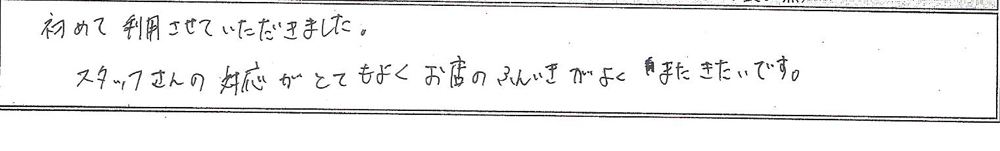 初めて利用させていただきました。
スタッフさんの対応がとてもよくお店のふんいきがよくまたきたいです。